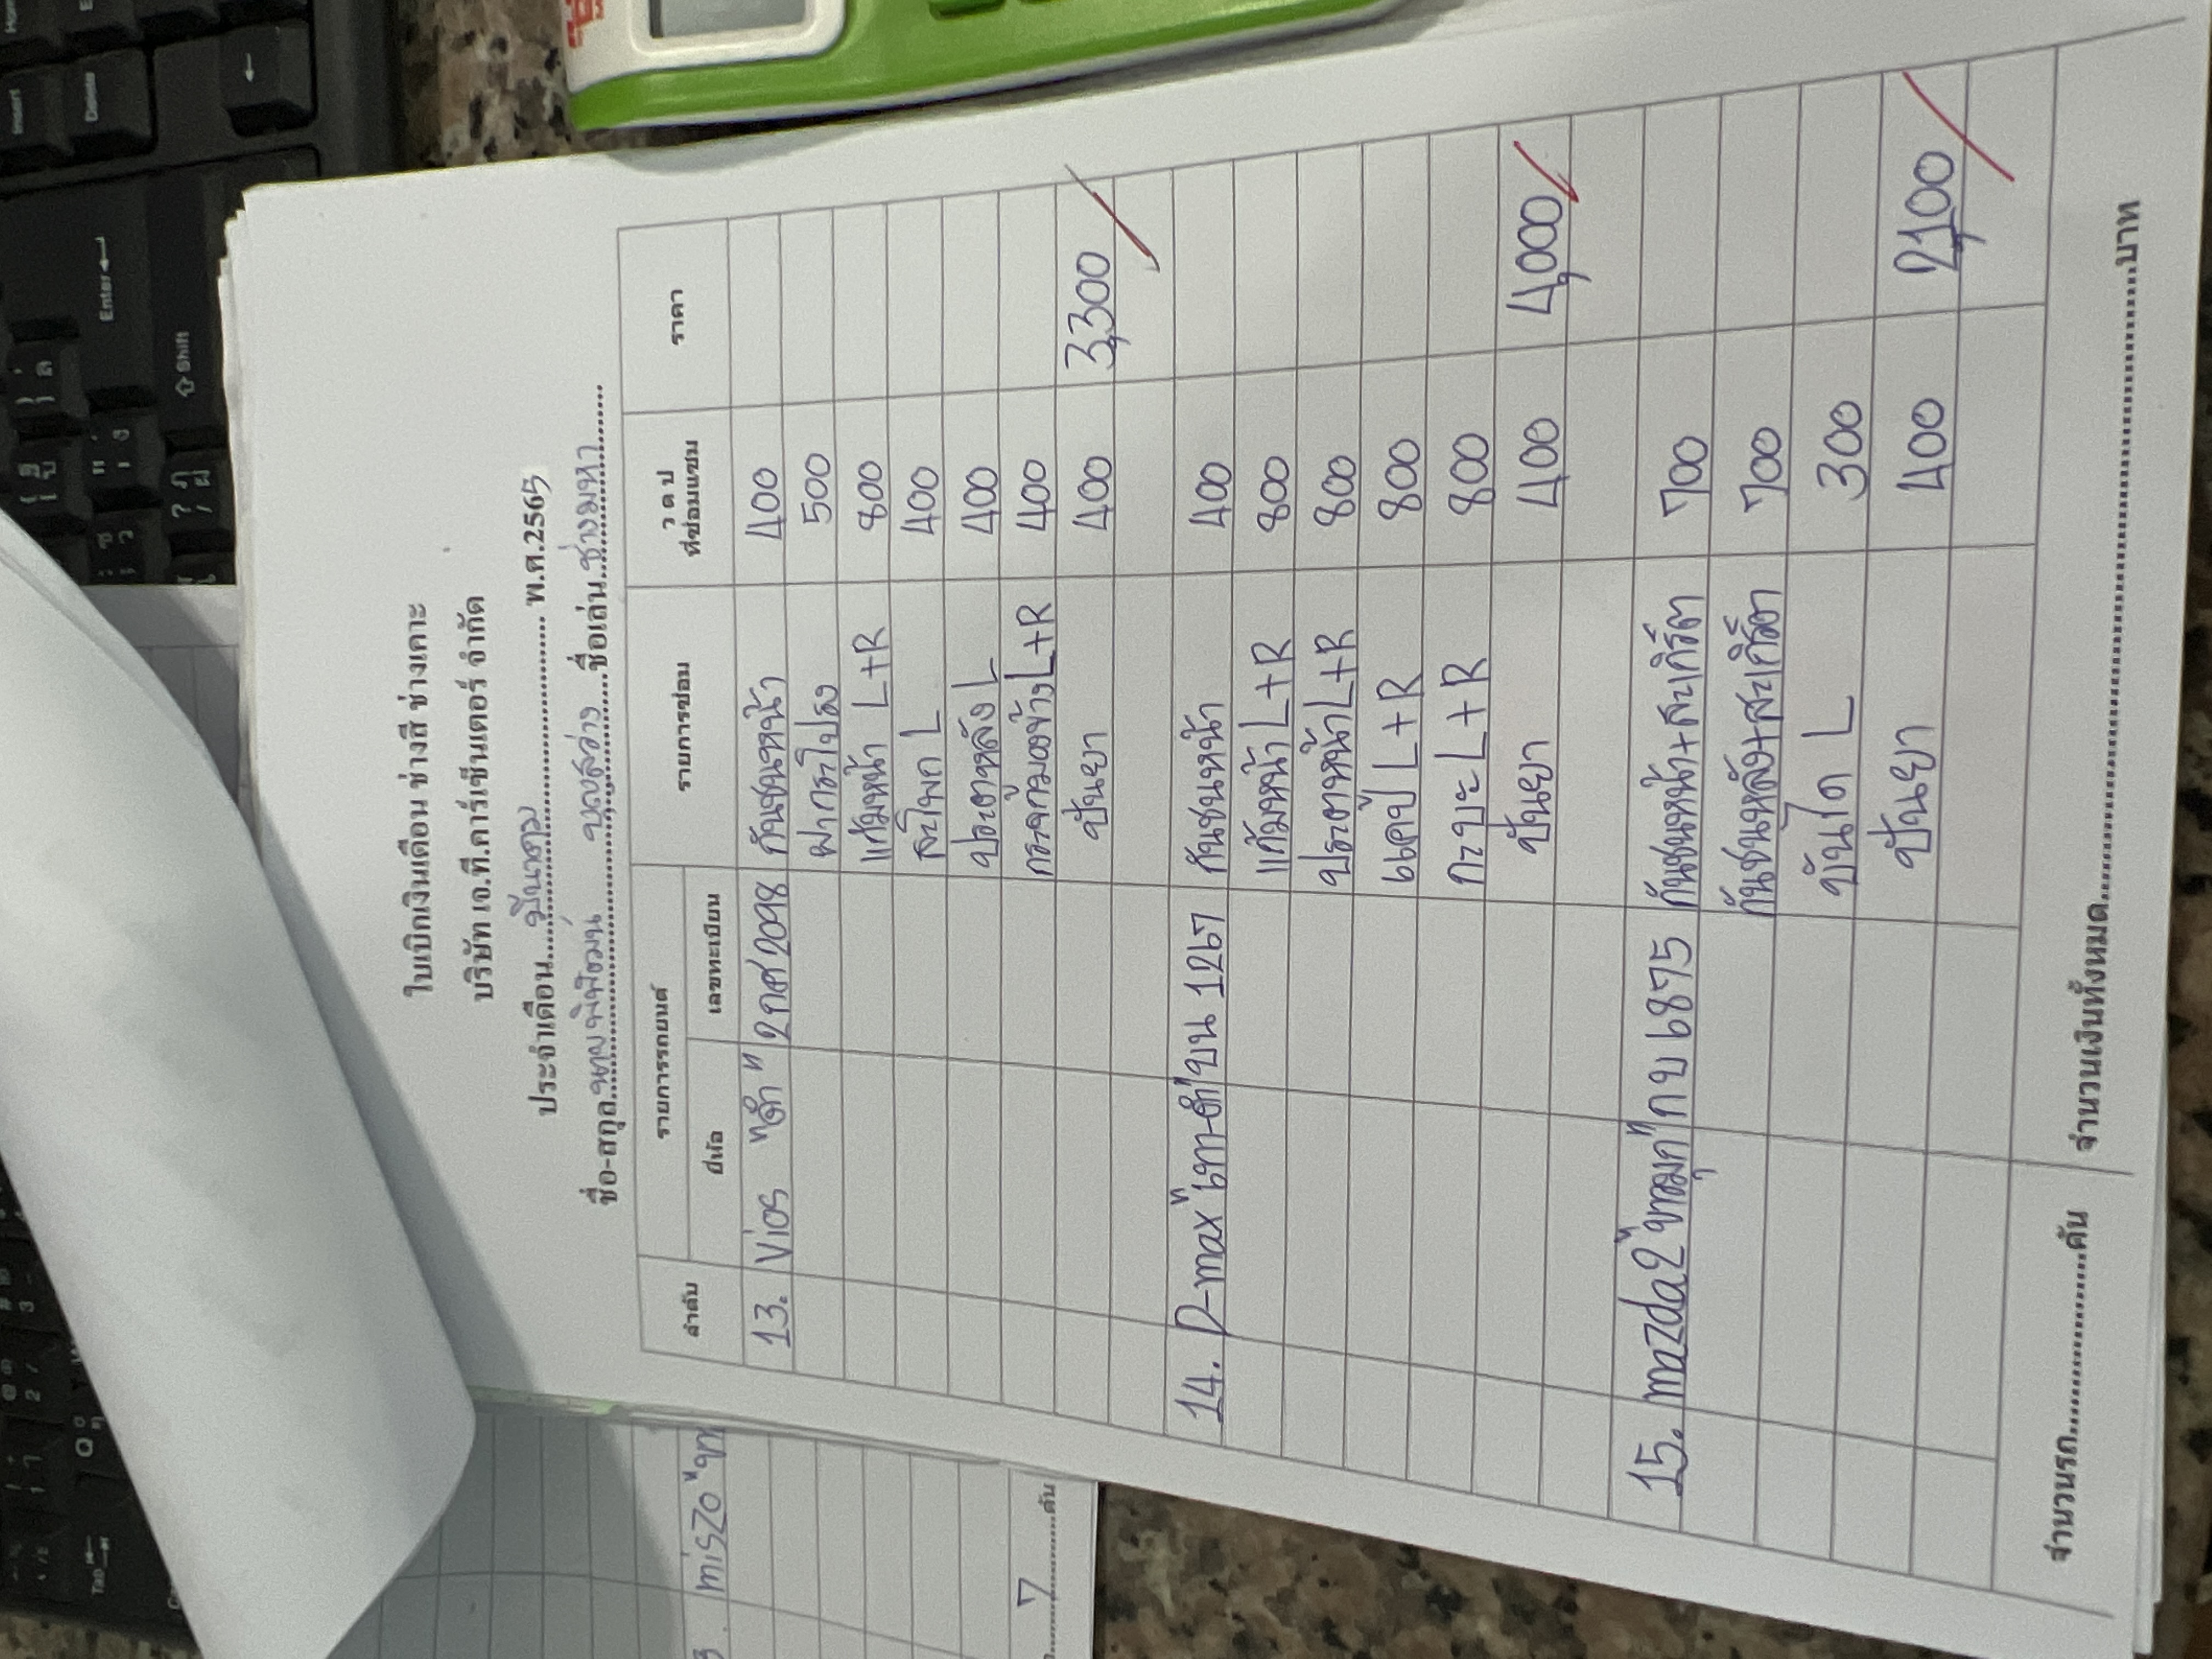 ใบเบิกเงินเดือน ช่างสี ช่างเคาะ
บริษัท เอ.ที.คาร์เซ็นเตอร์ จำกัด
ประจำเดือน....มีนาคม.... พ.ศ.2565
ชื่อ-สกุล..นายพิพัฒน์ บุญสว่าง...ชื่อเล่น..ช่างมหา....
ลำดับ รายการรถยนต์ รายการซ่อม ว ด ป ที่ซ่อมแซม ราคา
ยี่ห้อ เลขทะเบียน
13. Vios "ดำ" 2กศ 2098 กันชนหน้า 400
ฝากระโปรง 500
แก้มหน้า L+R 800
สะโพก L 400
ประตูหลัง L 400
กระจกมองข้าง L+R 400
ปั่นยา 400 3,300
14. D-max "เทา-ดำ" บน 1267 กันชนหน้า 400
แก้มหน้า L+R 800
ประตูหน้า L+R 800
แคป L+R 800
กะบะ L+R 800
ปั่นยา 400 4,000
15. mazda2 "ขาวมุก" กบ 6875 กันชนหน้า+สะเกิ๊ต 700
กันชนหลัง+สะเกิ๊ต 700
บันได L 300
ปั่นยา 400 2,100
จำนวนรถ....................คัน จำนวนเงินทั้งหมด....................บาท
7 คัน
Enter
Shift
Insert
Delete
Tab